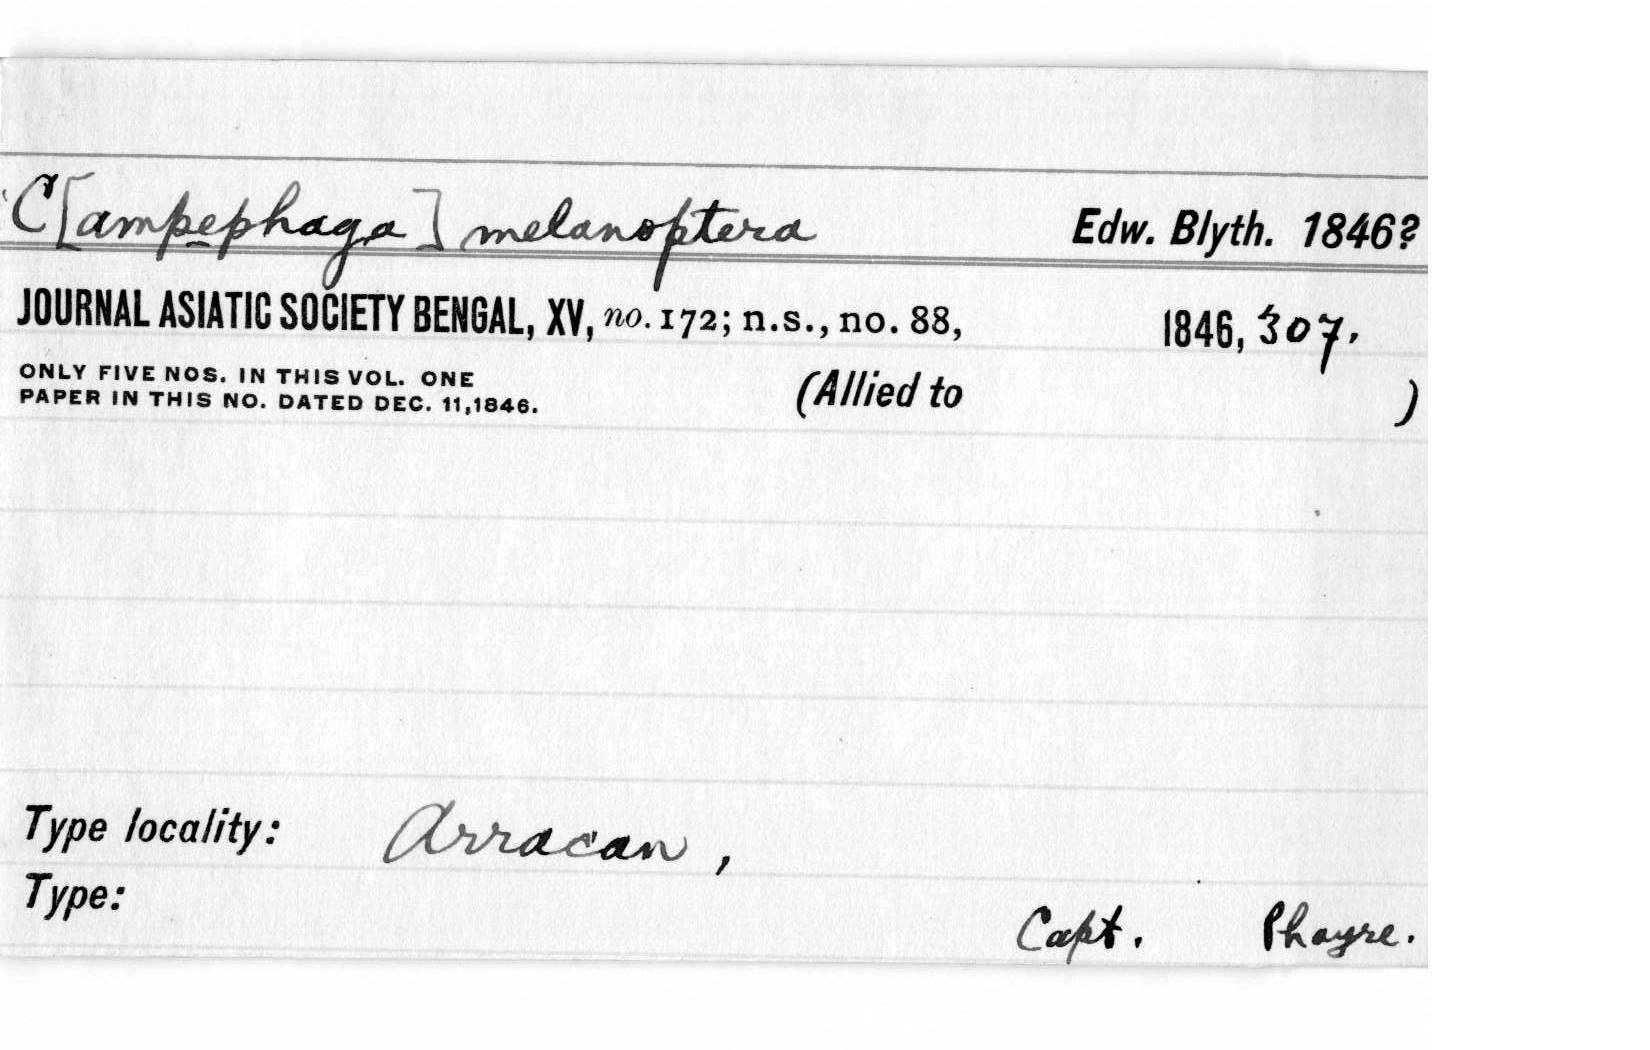 C[ampephaga] melanoptera Edw. Blyth. 1846?
JOURNAL ASIATIC SOCIETY BENGAL, XV, no. 172; n.s., no. 88, 1846, 307.
ONLY FIVE NOS. IN THIS VOL. ONE
PAPER IN THIS NO. DATED DEC. 11,1846.
(Allied to )
Type locality: Arracan,
Type:
Capt. Phayre.